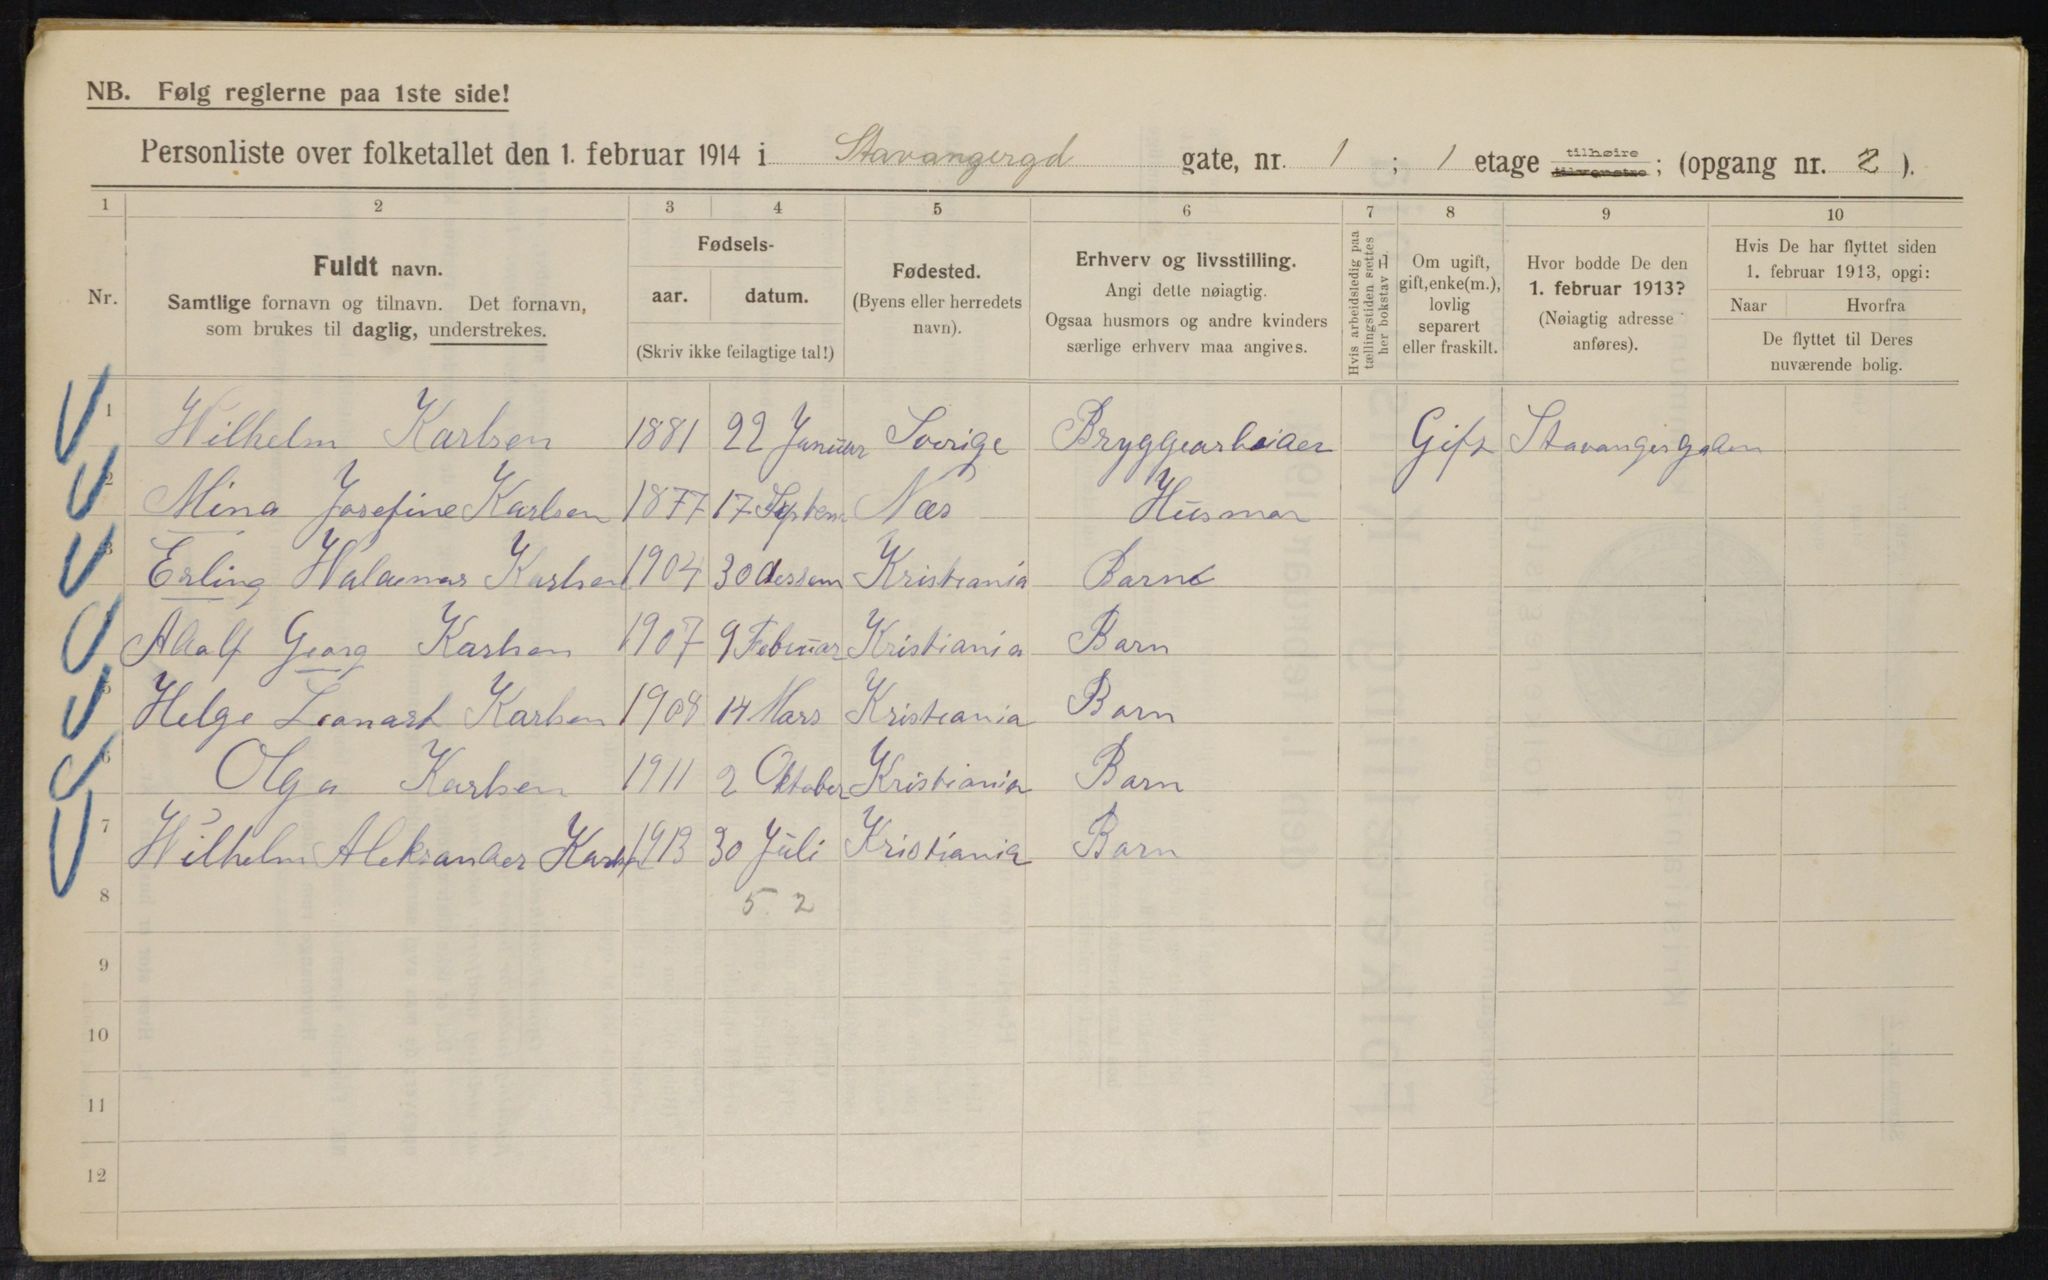 NB. Følg reglerne paa 1ste side!
Personliste over folketallet den 1. februar 1914 i Stavangergd gate, nr. 1 ; 1 etage tilhøire tilvenstre ; (opgang nr. 2 ).
1 2 3 4 5 6 7 8 9 10
Nr.
Fuldt navn.
Samtlige fornavn og tilnavn. Det fornavn,
som brukes til daglig, understrekes.
Fødsels-
aar. datum.
(Skriv ikke feilagtige tal!)
Fødested.
(Byens eller herredets
navn).
Erhverv og livsstilling.
Angi dette nøiagtig.
Ogsaa husmors og andre kvinders
særlige erhverv maa angives.
Hvis arbeidsledig paa
tællingstiden sættes
her bokstav L
Om ugift,
gift, enke(m.),
lovlig
separert
eller fraskilt.
Hvor bodde De den
1. februar 1913?
(Nøiagtig adresse
anføres).
Hvis De har flyttet siden
1. februar 1913, opgi:
Naar Hvorfra
De flyttet til Deres
nuværende bolig.
1 Wilhelm Karlsen 1881 22 Januar Sverige Bryggearbeider Gift Stavangergaden
2 Mina Josefine Karlsen 1877 17 Septem Næs Husmor
3 Erling Waldemar Karlsen 1904 30 dessem Kristiania Barn
4 Adolf Georg Karlsen 1907 9 Februar Kristiania Barn
5 Helge Leonart Karlsen 1908 14 Mars Kristiania Barn
6 Olga Karlsen 1911 2 Oktober Kristiania Barn
7 Wilhelm Aleksander Karls 1913 30 Juli Kristiania Barn
8 5 2
9
10
11
12